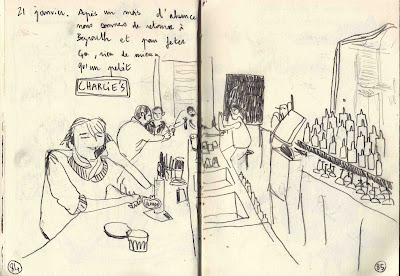 21 janvier. Après un mois d'absence
nous sommes de retour à
Beyrouth et pour fêter
ça, rien de mieux
qu'un petit
CHARLIE'S
84
85